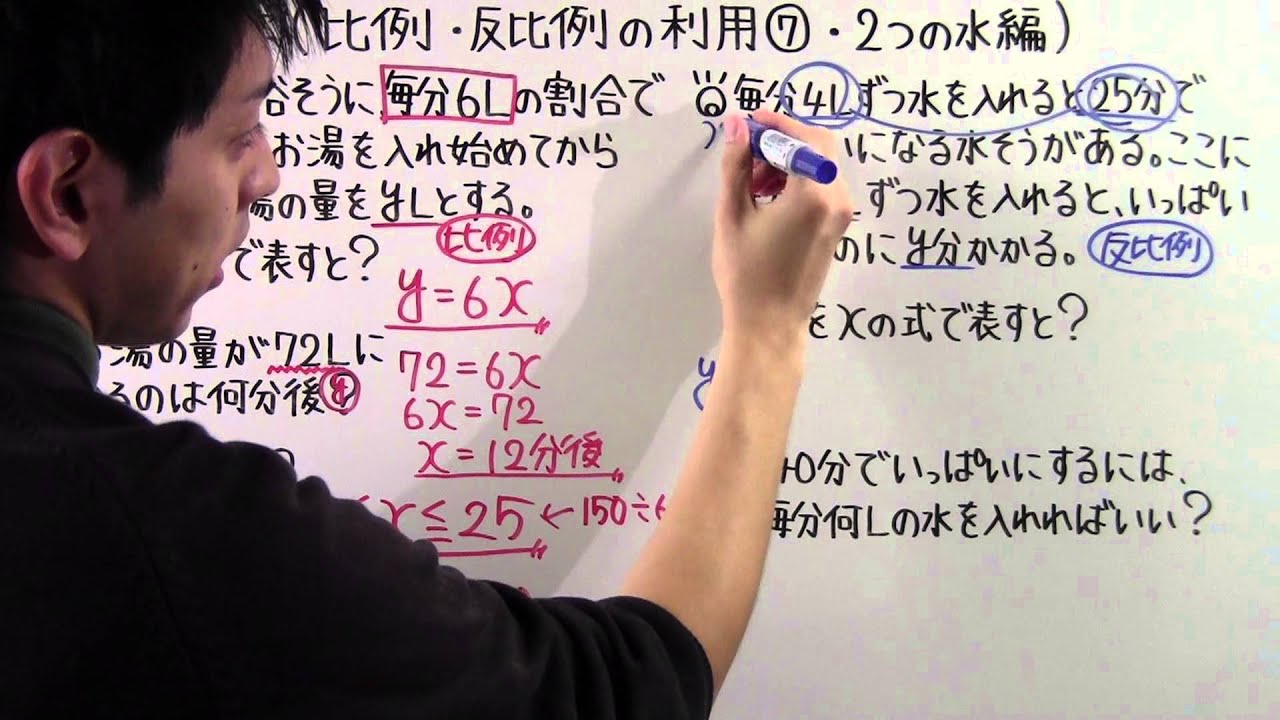 (比例・反比例の利用⑦・2つの水編)
そうに毎分6Lの割合で
お湯を入れ始めてから
湯の量をyLとする。
比例
で表すと?
y=6x
湯の量が72Lに
るのは何分後?
y
72=6x
6x=72
x=12分後
x≦25←150÷6
毎分4Lずつ水を入れると25分で
いになる水そうがある。ここに
ずつ水を入れると、いっぱい
のにy分かかる。 反比例
をxの式で表すと?
y
40分でいっぱいにするには、
毎分何Lの水を入れればいい?